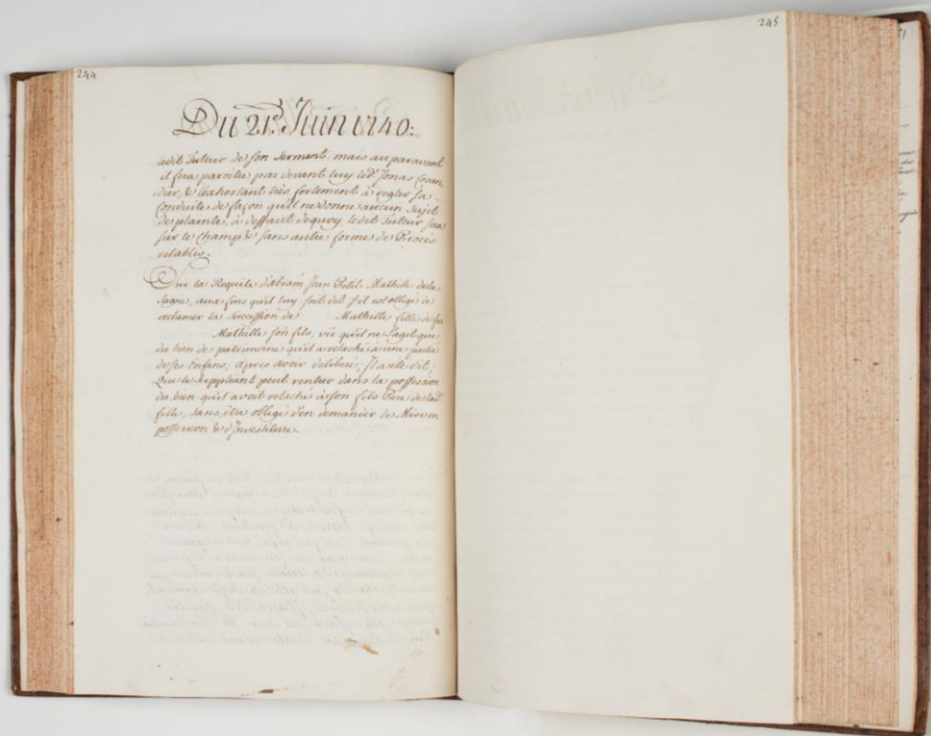 244
Du 21e. Juin 1740:
ledit Tuteur de son serment; mais auparavant
il fera paroitre par devant luy led. Jonas
& l'exhortant très fortement à regler sa
Conduite de façon qu'il ne donne aucun Sujet
de plainte, à deffaut dequoy, ledit Tuteur sera
sur le Champ & sans autre forme de Procès
retabli.
Sur la Requete d'Abram Jean Petit Mathile de la
Sagne, aux fins qu'il luy soit dit s'il est obligé de
reclamer la Succession de Mathille fille de
Mathille son fils, vû qu'il ne s'agit que
du bien de patrimoine qu'il a relaché à une partie
de ses Enfans; après avoir deliberé; Il a eté dit;
Que le Suppliant peut rentrer dans la possession
du bien qu'il avoit relaché à son fils Pere de lad.
fille, sans être obligé d'en demander de Mise en
possession & d'Investiture.
245